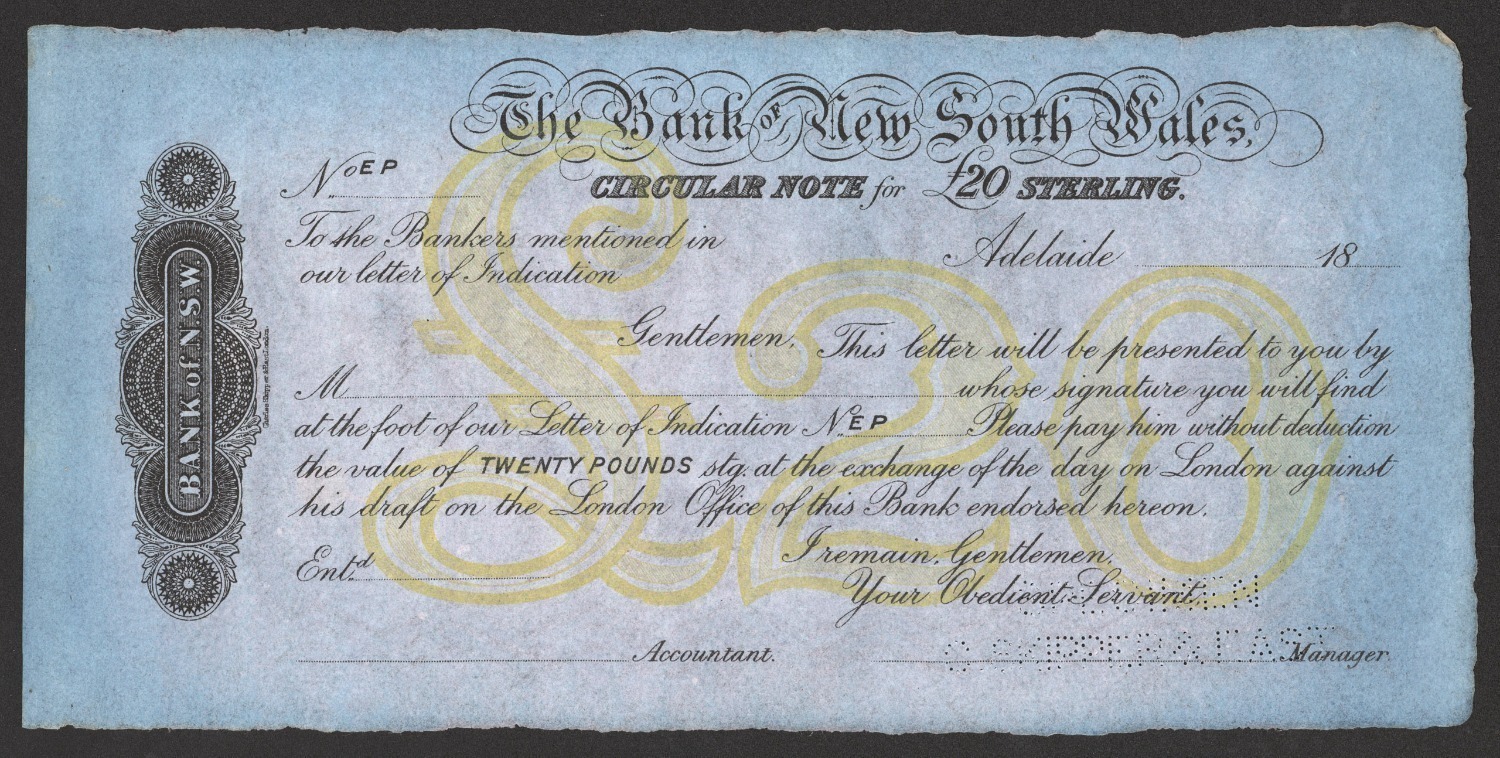 The Bank OF New South Wales,
CIRCULAR NOTE for £20 STERLING.
No EP
To the Bankers mentioned in
our letter of Indication
Adelaide 18
£20
Gentlemen, This letter will be presented to you by
M whose signature you will find
at the foot of our Letter of Indication No EP Please pay him without deduction
the value of TWENTY POUNDS stg. at the exchange of the day on London against
his draft on the London Office of this Bank endorsed hereon.
I remain, Gentlemen,
Entd.
Your Obedient Servant,
Accountant. Manager
BANK of N.S.W